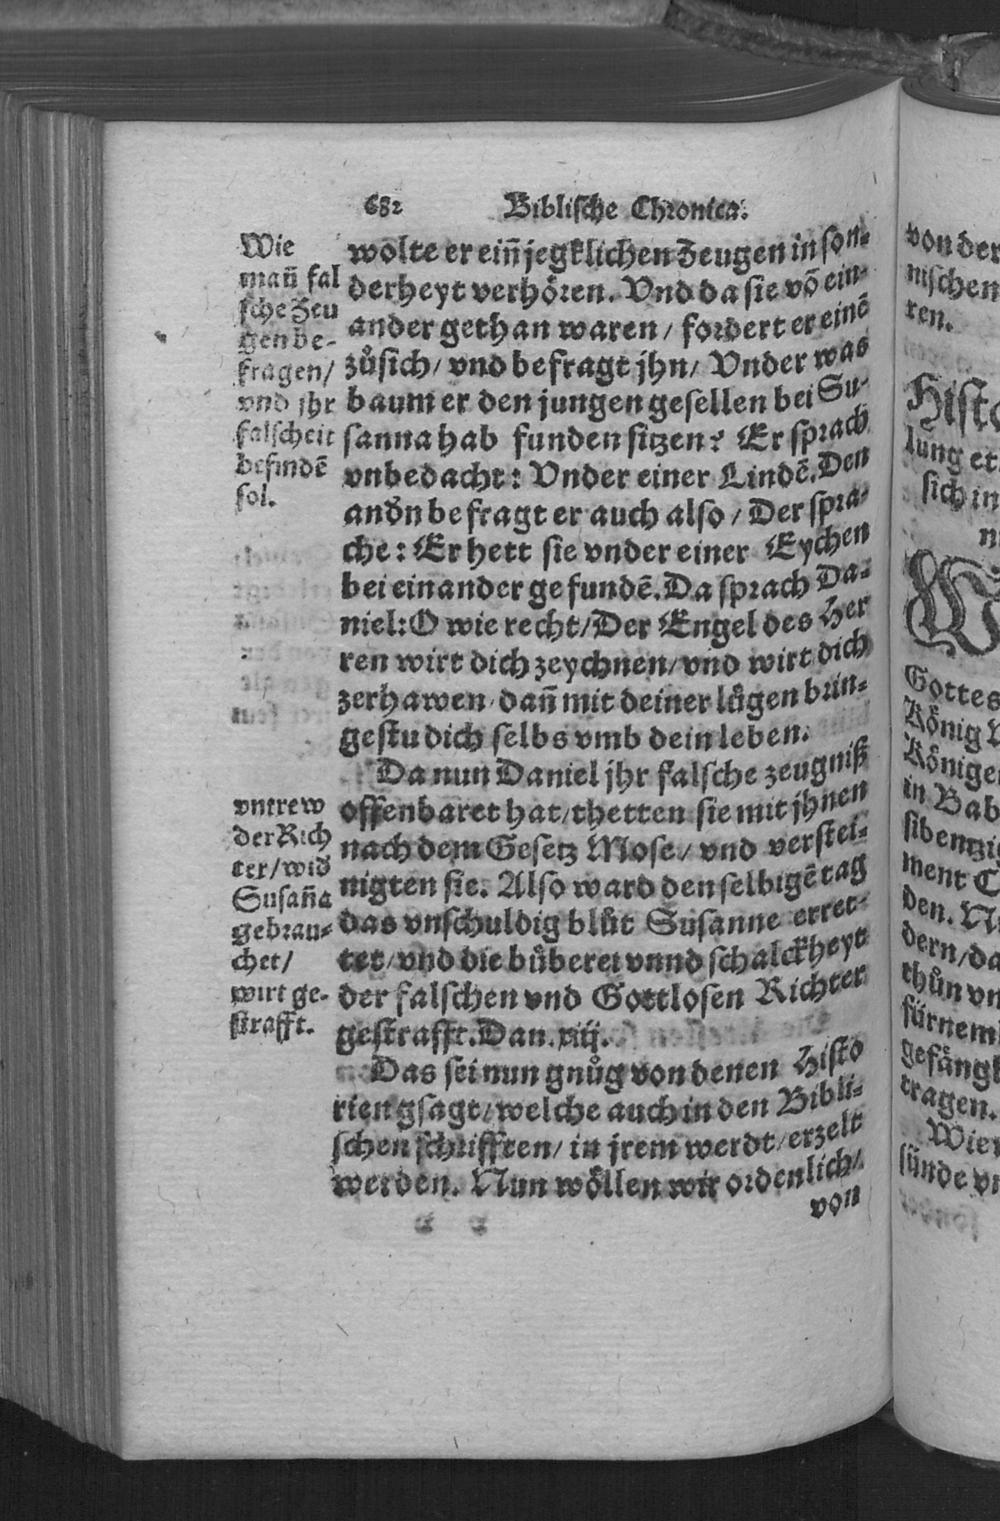 682 Biblische Chronica.
Wie
mañ fal
sche Zeu
gen be-
fragen/
vnd jhr
falscheit
befindẽ
sol.
wolte er eiñ jegklichen Zeugen in son-
derheyt verhören. Vnd da sie võ ein-
ander gethan waren/ fordert er einẽ
zůsich/ vnd befragt jhn/ Vnder was
baum er den jungen gesellen bei Su-
sanna hab funden sitzen? Er sprach
vnbedacht: Vnder einer Lindẽ. Den
andn befragt er auch also/ Der spra-
che: Er hett sie vnder einer Eychen
bei einander gefundẽ. Da sprach Da-
niel: O wie recht/ Der Engel des Her
ren wirt dich zeychnen/ vnd wirt dich
zerhawen/ dañ mit deiner lügen brin-
gestu dich selbs vmb dein leben.
Da nun Daniel jhr falsche zeugniß
offenbaret hat/ thetten sie mit jhnen
nach dem Gesetz Mose/ vnd verstei-
nigten sie. Also ward denselbigẽ tag
das vnschuldig blůt Susanne erret-
tet/ vnd die bůberei vnnd schalckheyt
der falschen vnd Gottlosen Richter
gestrafft. Dan. xiij.
vntrew
der Rich
ter/ wid
Susaña
gebrau-
chet/
wirt ge-
strafft.
Das sei nun gnůg von denen Histo
rien gsagt/ welche auch in den Bibli-
schen schrifften/ in jrem werdt/ erzelt
werden. Nun wöllen wir ordenlich/
von
von der
nischen
ren.
Histo
lung et
sich in
W
Gottes
König
Könige
in Bab
sibentzi
ment C
den. N
dern/ da
thůn vn
fürnem
gefäng
tragen.
Wie
sünde v